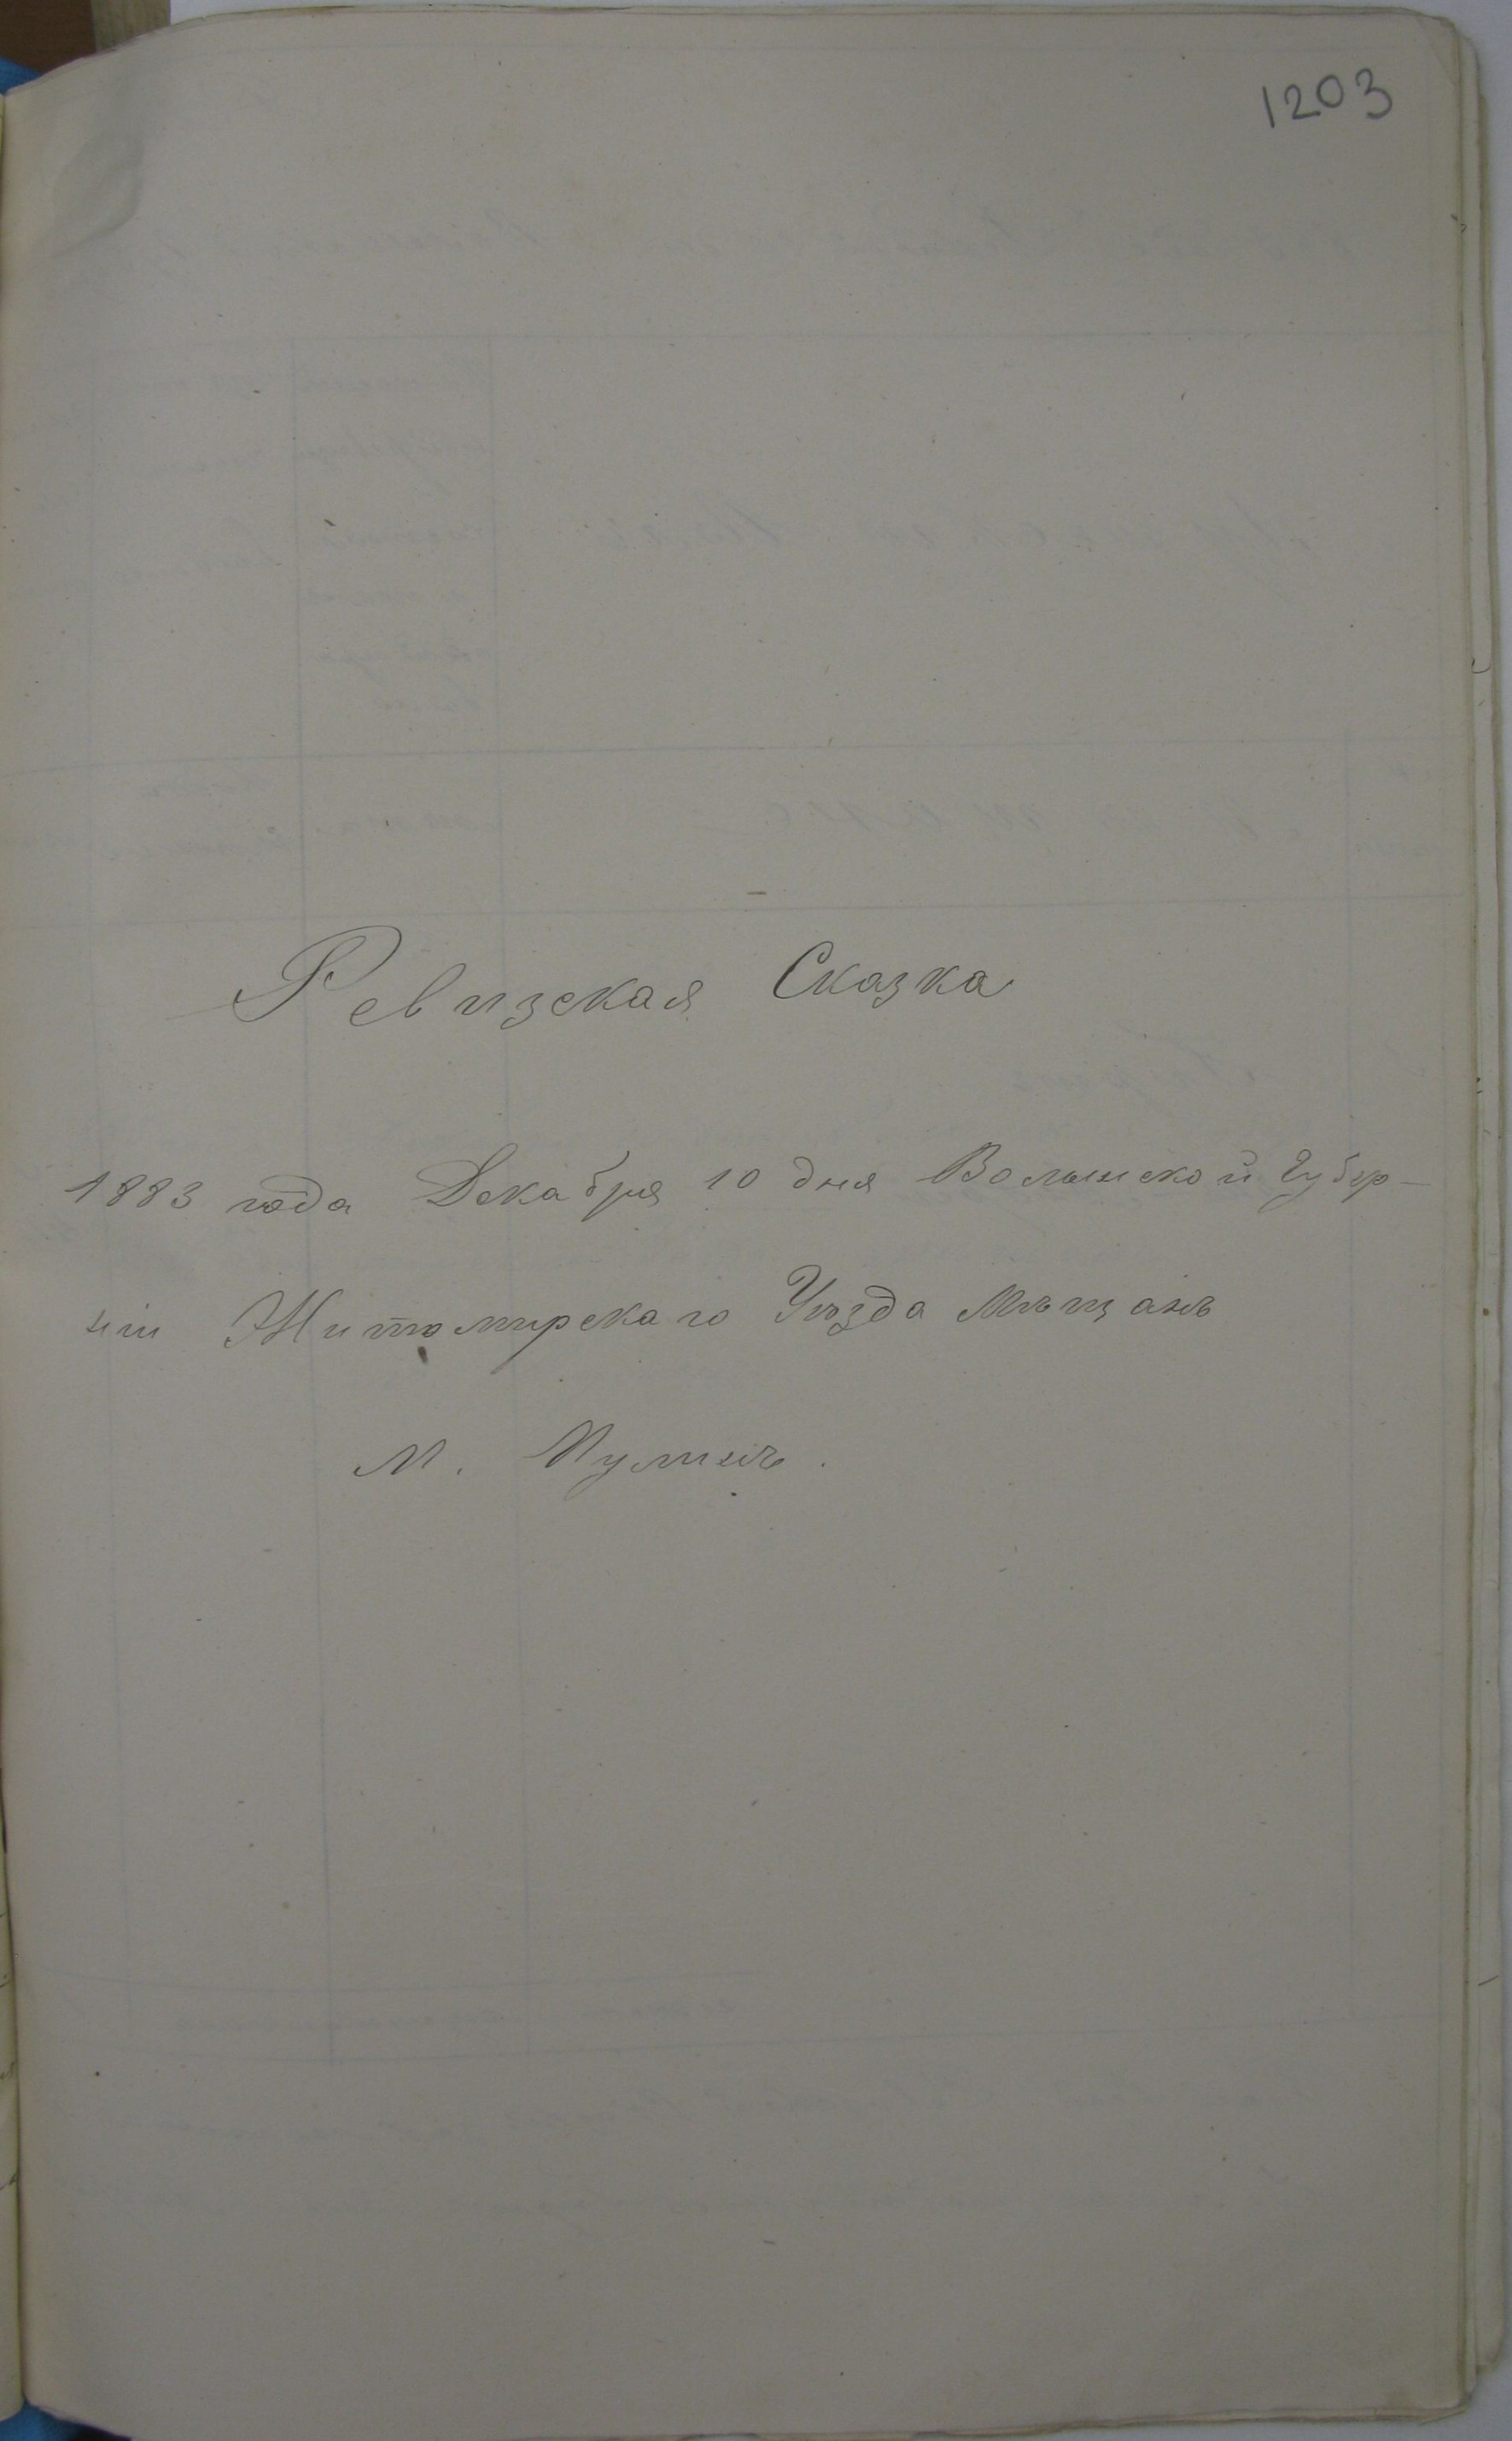 1203
Ревизская Сказка
1883 года Декабря 10 дня Волынской Губер-
ніи Житомирскаго Уѣзда Мѣщанъ
М. Пулинъ.